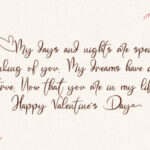 My days and nights are spe
nking of you. My dreams have c
true. Now that you are in my lif
Happy Valentine's Day